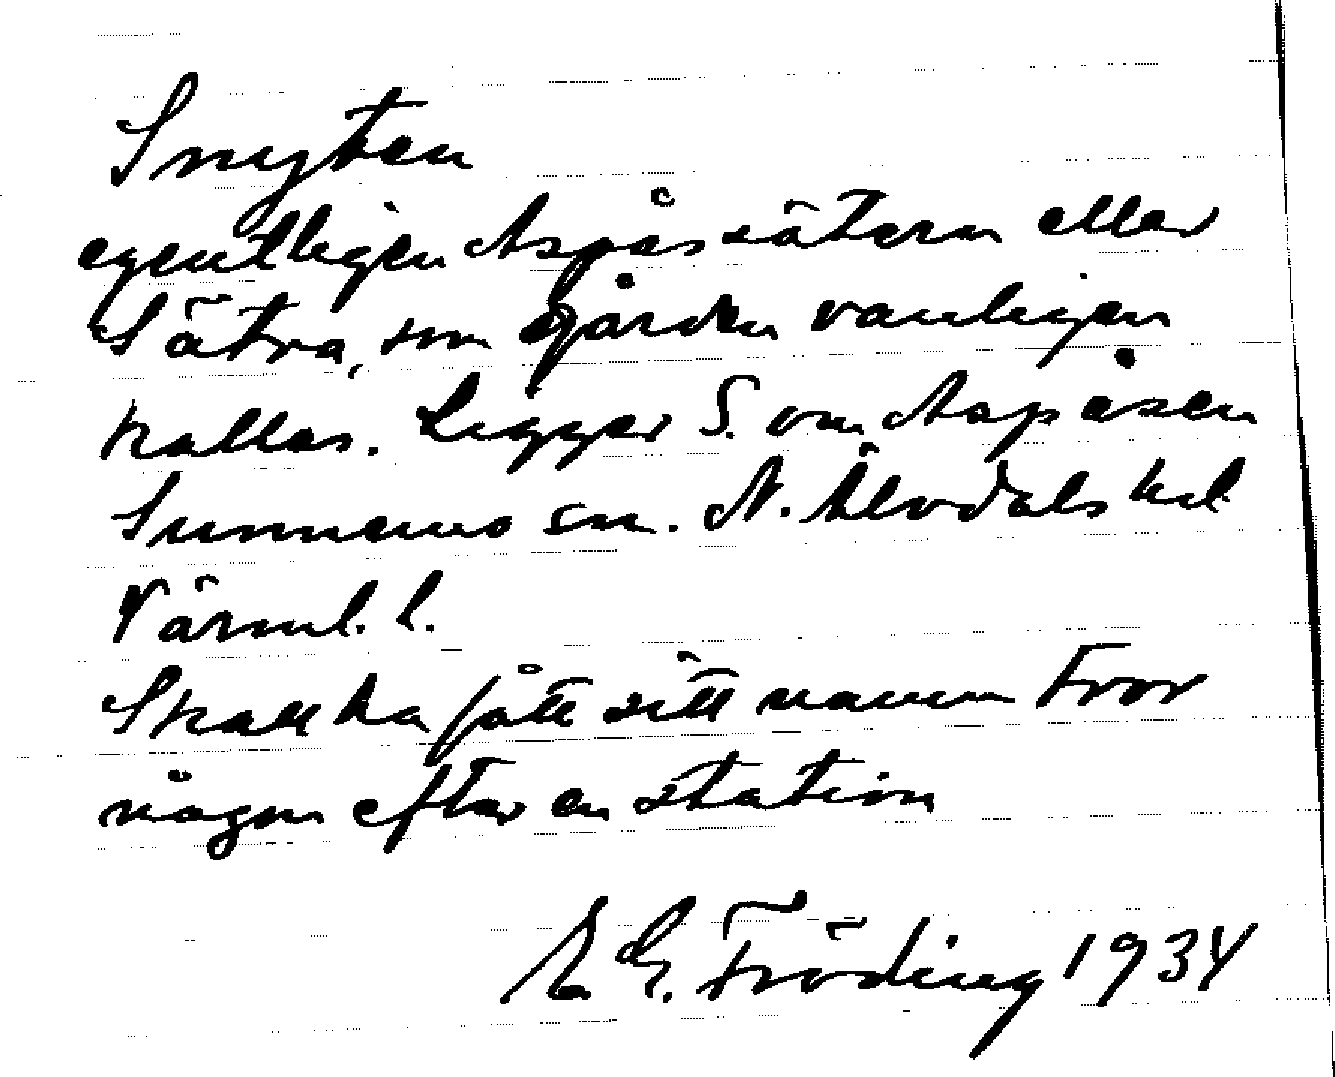 Smyten
egentligen Aspåssätern eller
Sätra, som gården vanligen
kallas. Ligger S. om Aspåsen
Sunnemo sn. N. Älvdals hd
Värml. l.
Skall ha fått sitt namn Fror
någon efter en station
E G. Fröding 1934